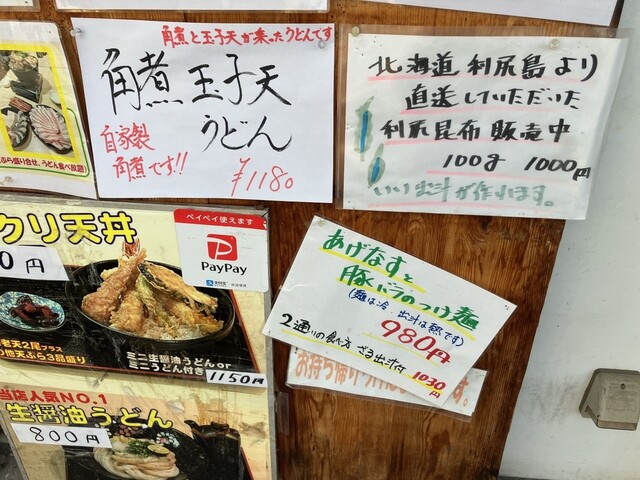 角煮と玉子天が乗ったうどんです
角煮玉子天
うどん
自家製
角煮です!!
¥1180
北海道利尻島より
直送していただいた
利尻昆布販売中
100g 1000円
いい出汁が作れます。
ぷら盛り合せ、うどん食べ放題)
クリ天丼
0円
ペイペイ使えます
PayPay
老天2尾プラス
の他天ぷら3品盛り
ミニ生醤油うどんor
ミニうどん付き
1150円
あげなすと
豚バラのつけ麺
(麺は冷 出汁は熱です)
980円
2通りの食べ方 ざる出汁付 1030円
お持ち帰り
す。
当店人気NO.1
生醤油うどん
800円